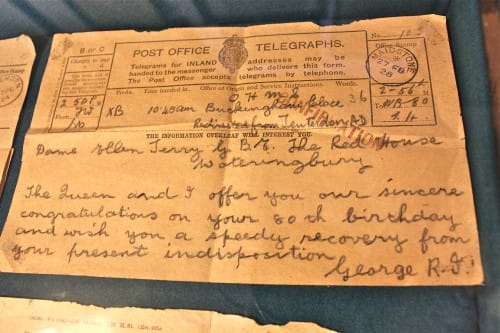 B or C
POST OFFICE TELEGRAPHS.
Office Stamp
Telegrams for INLAND addresses may be
handed to the messenger who delivers this form.
The Post Office accepts telegrams by telephone.
MAIDSTONE
27 FEB
28
Prefix. Time handed in. Office of Origin and Service Instructions. Words.
O.H.M.S 36
XB 10.45am Buckingham Palace
Redirected from Tenterden
THE INFORMATION OVERLEAF WILL INTEREST YOU.
Dame Ellen Terry G B E. The Red House
Wateringbury
The Queen and I offer you our sincere
congratulations on your 80th birthday
and wish you a speedy recovery from
your present indisposition
George R.I.